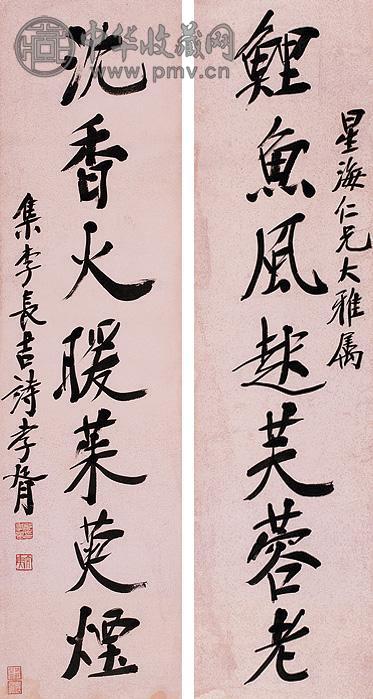 星海仁兄大雅属
鯉魚風起芙蓉老
沈香火暖茱萸煙
集李長吉詩孝胥
中华收藏网
www.pmv.cn